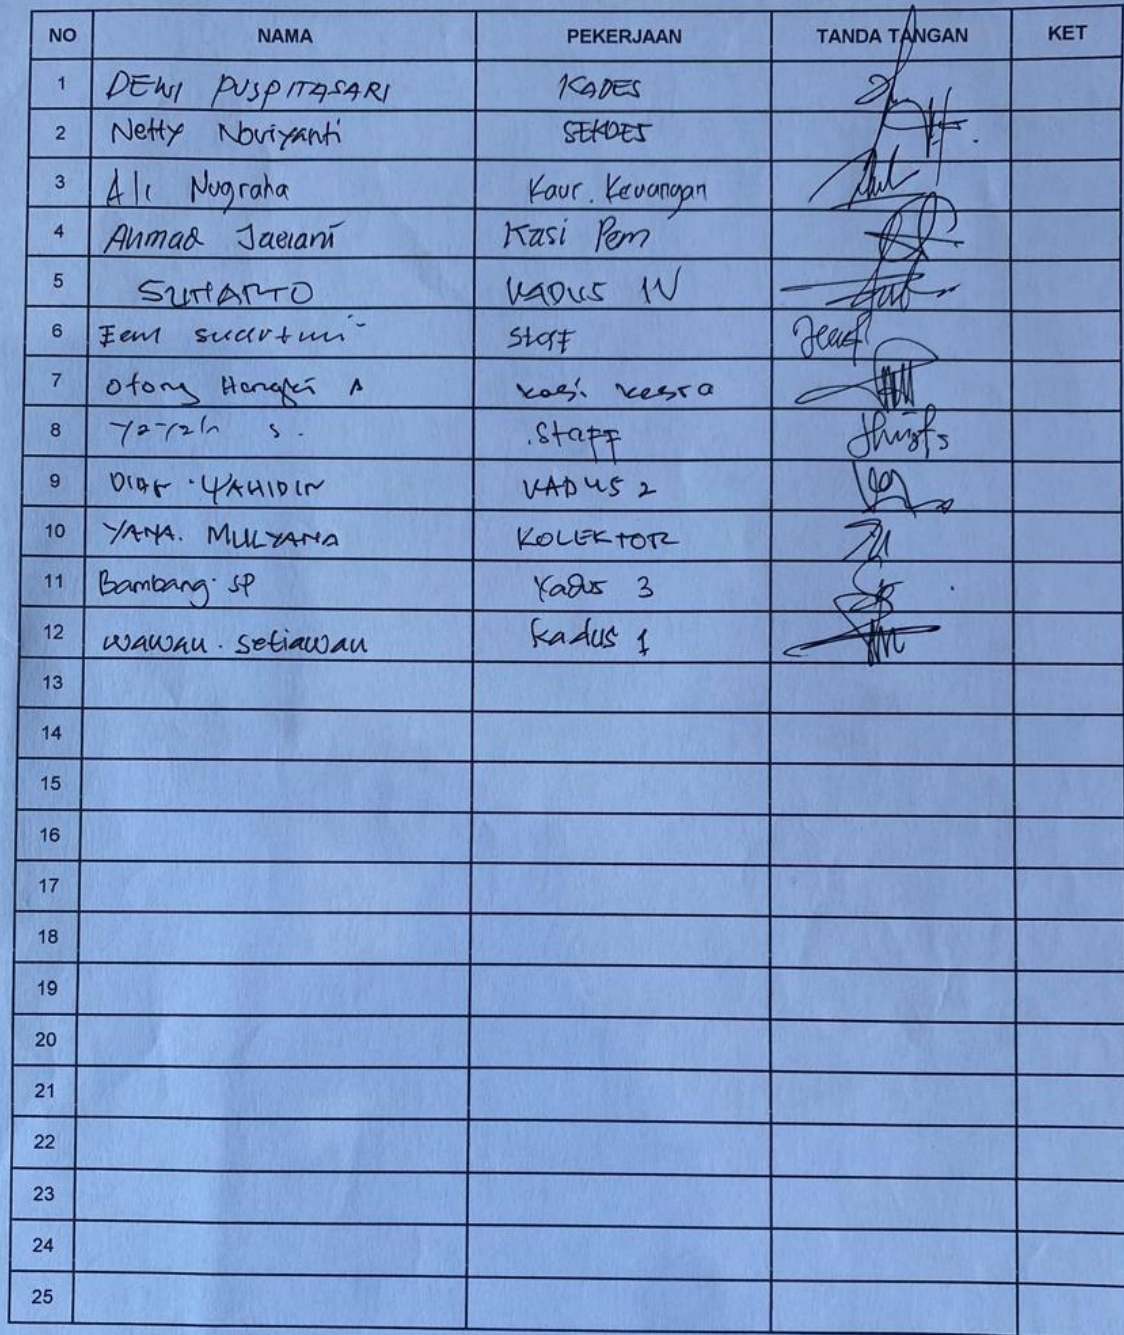 NO NAMA PEKERJAAN TANDA TANGAN KET
1 DEWI PUSPITASARI KADES
2 Netty Noviyanti SEKDES
3 Ali Nugraha Kaur. Keuangan
4 Ahmad Jaelani Kasi Pem
5 SUHARTO KADUS IV
6 staff
7 Otong A kasi kesra
8 S. Staff
9 KADUS 2
10 YANA. MULYANA KOLEKTOR
11 Bambang. SP Kadus 3
12 wawan. setiawan Kadus 1
13
14
15
16
17
18
19
20
21
22
23
24
25